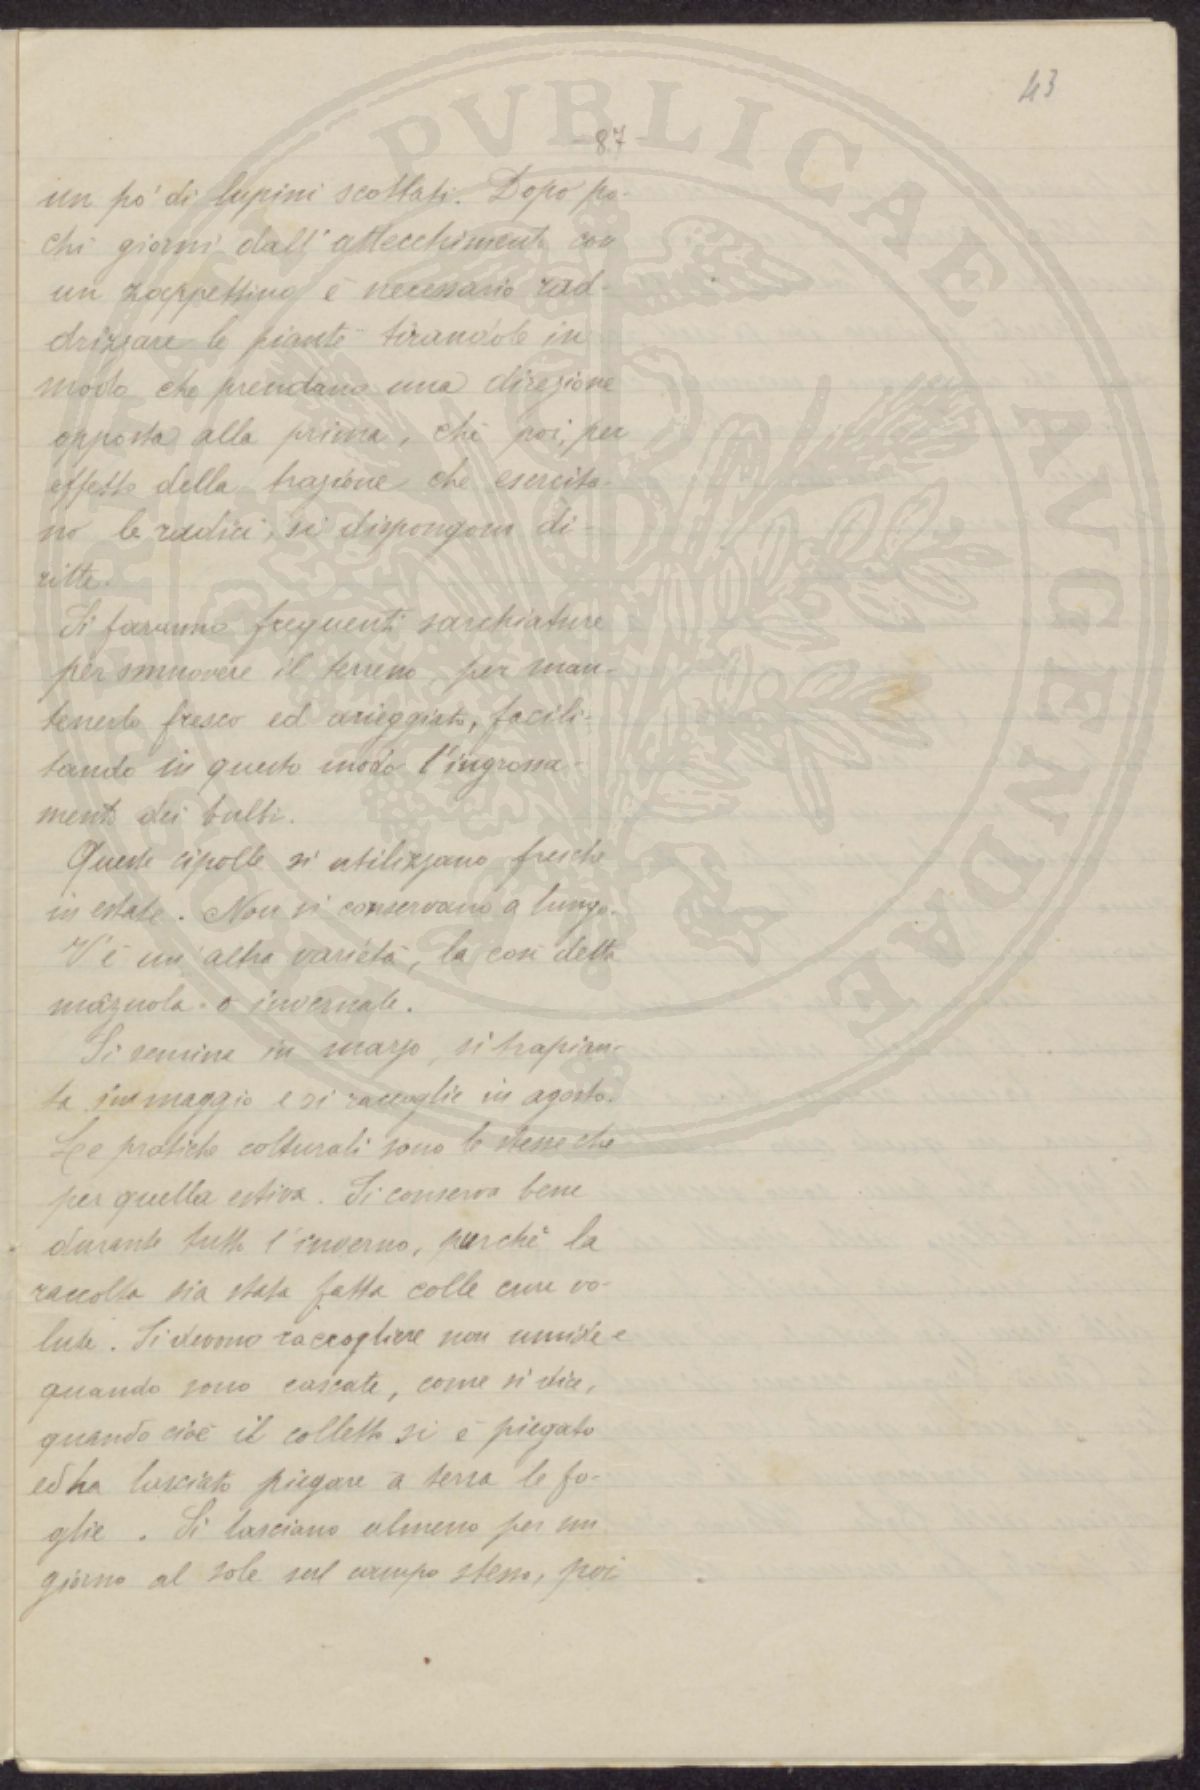 43
- 87 -
un pò di lupini scottati. Dopo po-
chi giorni dall'attecchimento con
un zappettino è necessario rad-
drizzare le piante tirandole in
modo che prendano una direzione
opposta alla prima, chè poi, per
effetto della trazione che esercita-
no le radici, si dispongono di-
ritte.
Si faranno frequenti sarchiature
per smuovere il terreno, per man-
tenerlo fresco ed arieggiato, facili-
tando in questo modo l'ingrossa-
mento dei bulbi.
Queste cipolle si utilizzano fresche
in estate. Non si conservano a lungo.
V'è un'altra varietà, la così detta
magnola o invernale.
Si semina in marzo, si trapian-
ta in maggio e si raccoglie in agosto.
Le pratiche colturali sono le stesse che
per quella estiva. Si conserva bene
durante tutto l'inverno, purchè la
raccolta sia stata fatta colle cure vo-
lute. Si devono raccogliere non umide e
quando sono cascate, come si dice,
quando cioè il colletto si è piegato
ed ha lasciato piegare a terra le fo-
glie. Si lasciano almeno per un
giorno al sole sul campo stesso, poi
PVBLICAE AVGENDAE